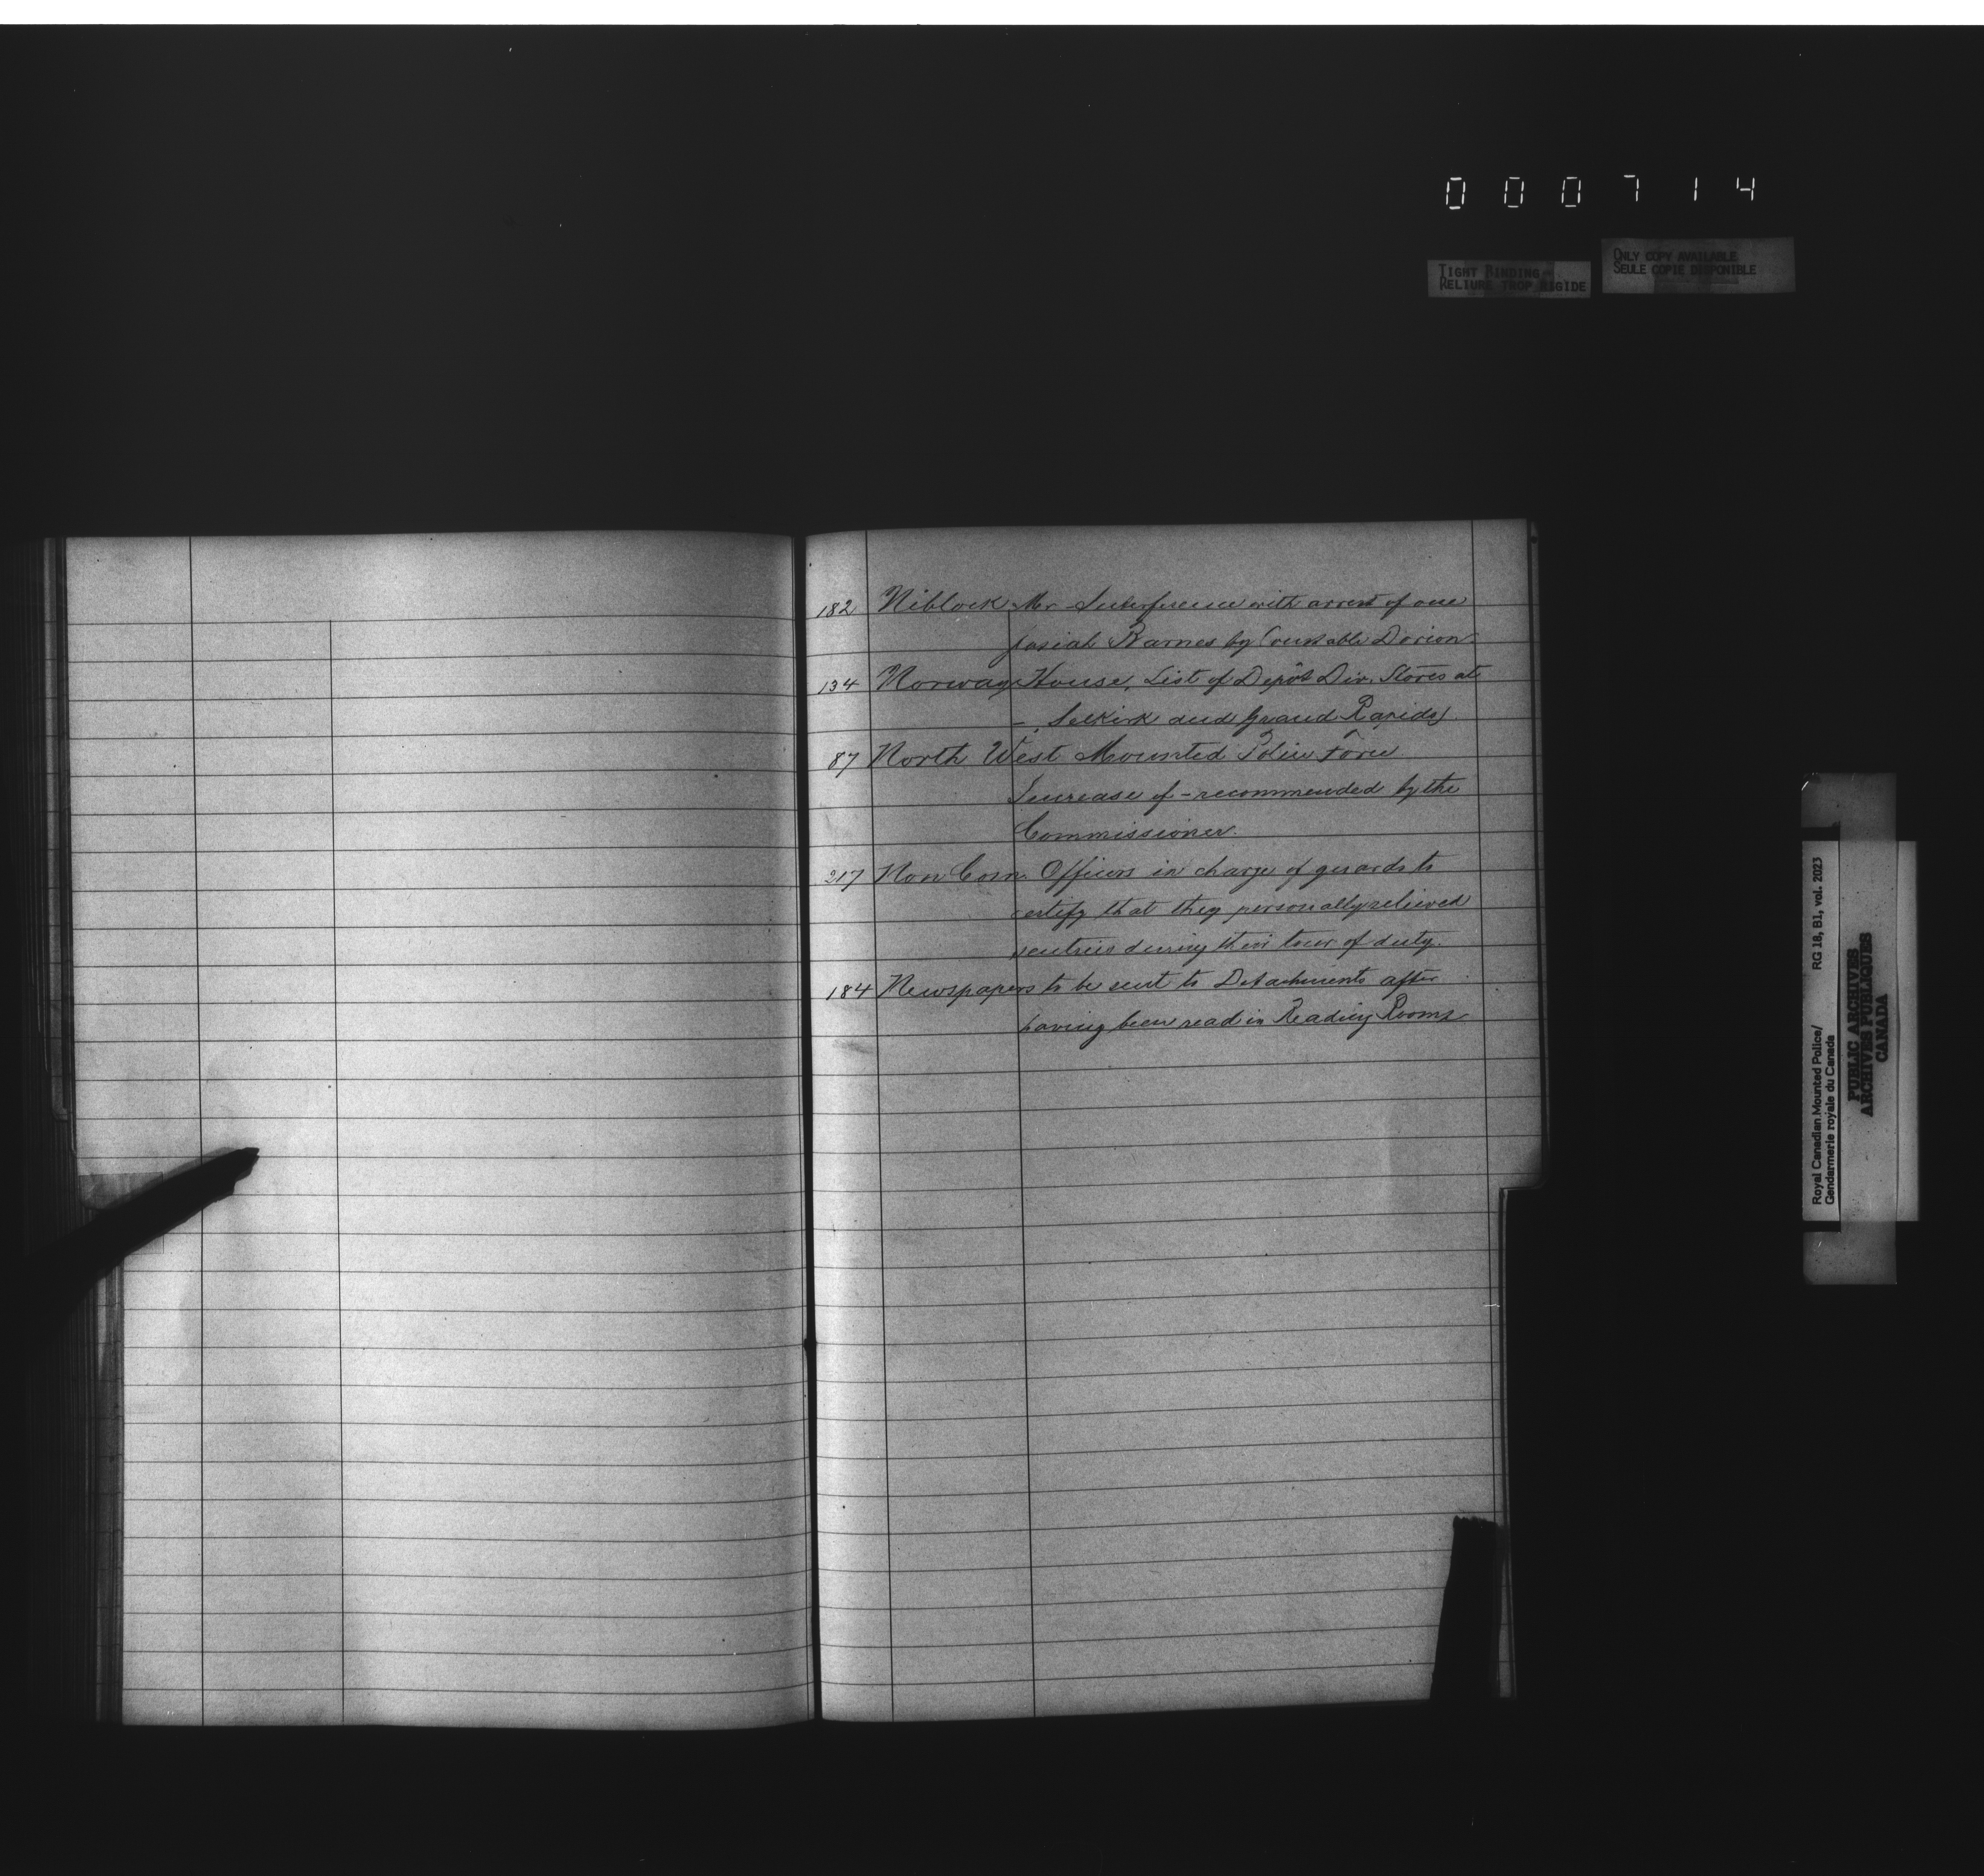 000714
TIGHT BINDING
RELIURE TROP RIGIDE
ONLY COPY AVAILABLE
SEULE COPIE DISPONIBLE
182 Niblock Mr - Interference with arrest of one
Josiah Barnes by Constable Dorion.
134 Norway House, List of Depôt Div. Stores at
- Selkirk and Grand Rapids
87 North West Mounted Police Force
Increase of - recommended by the
Commissioner.
217 Non Com. Officers in charge of guards to
certify that they personally relieved
sentries during their tour of duty.
184 Newspapers to be sent to Detachments after
having been read in Reading Rooms
Royal Canadian Mounted Police/
Gendarmerie royale du Canada
RG 18, B1, vol. 2023
PUBLIC ARCHIVES
ARCHIVES PUBLIQUES
CANADA